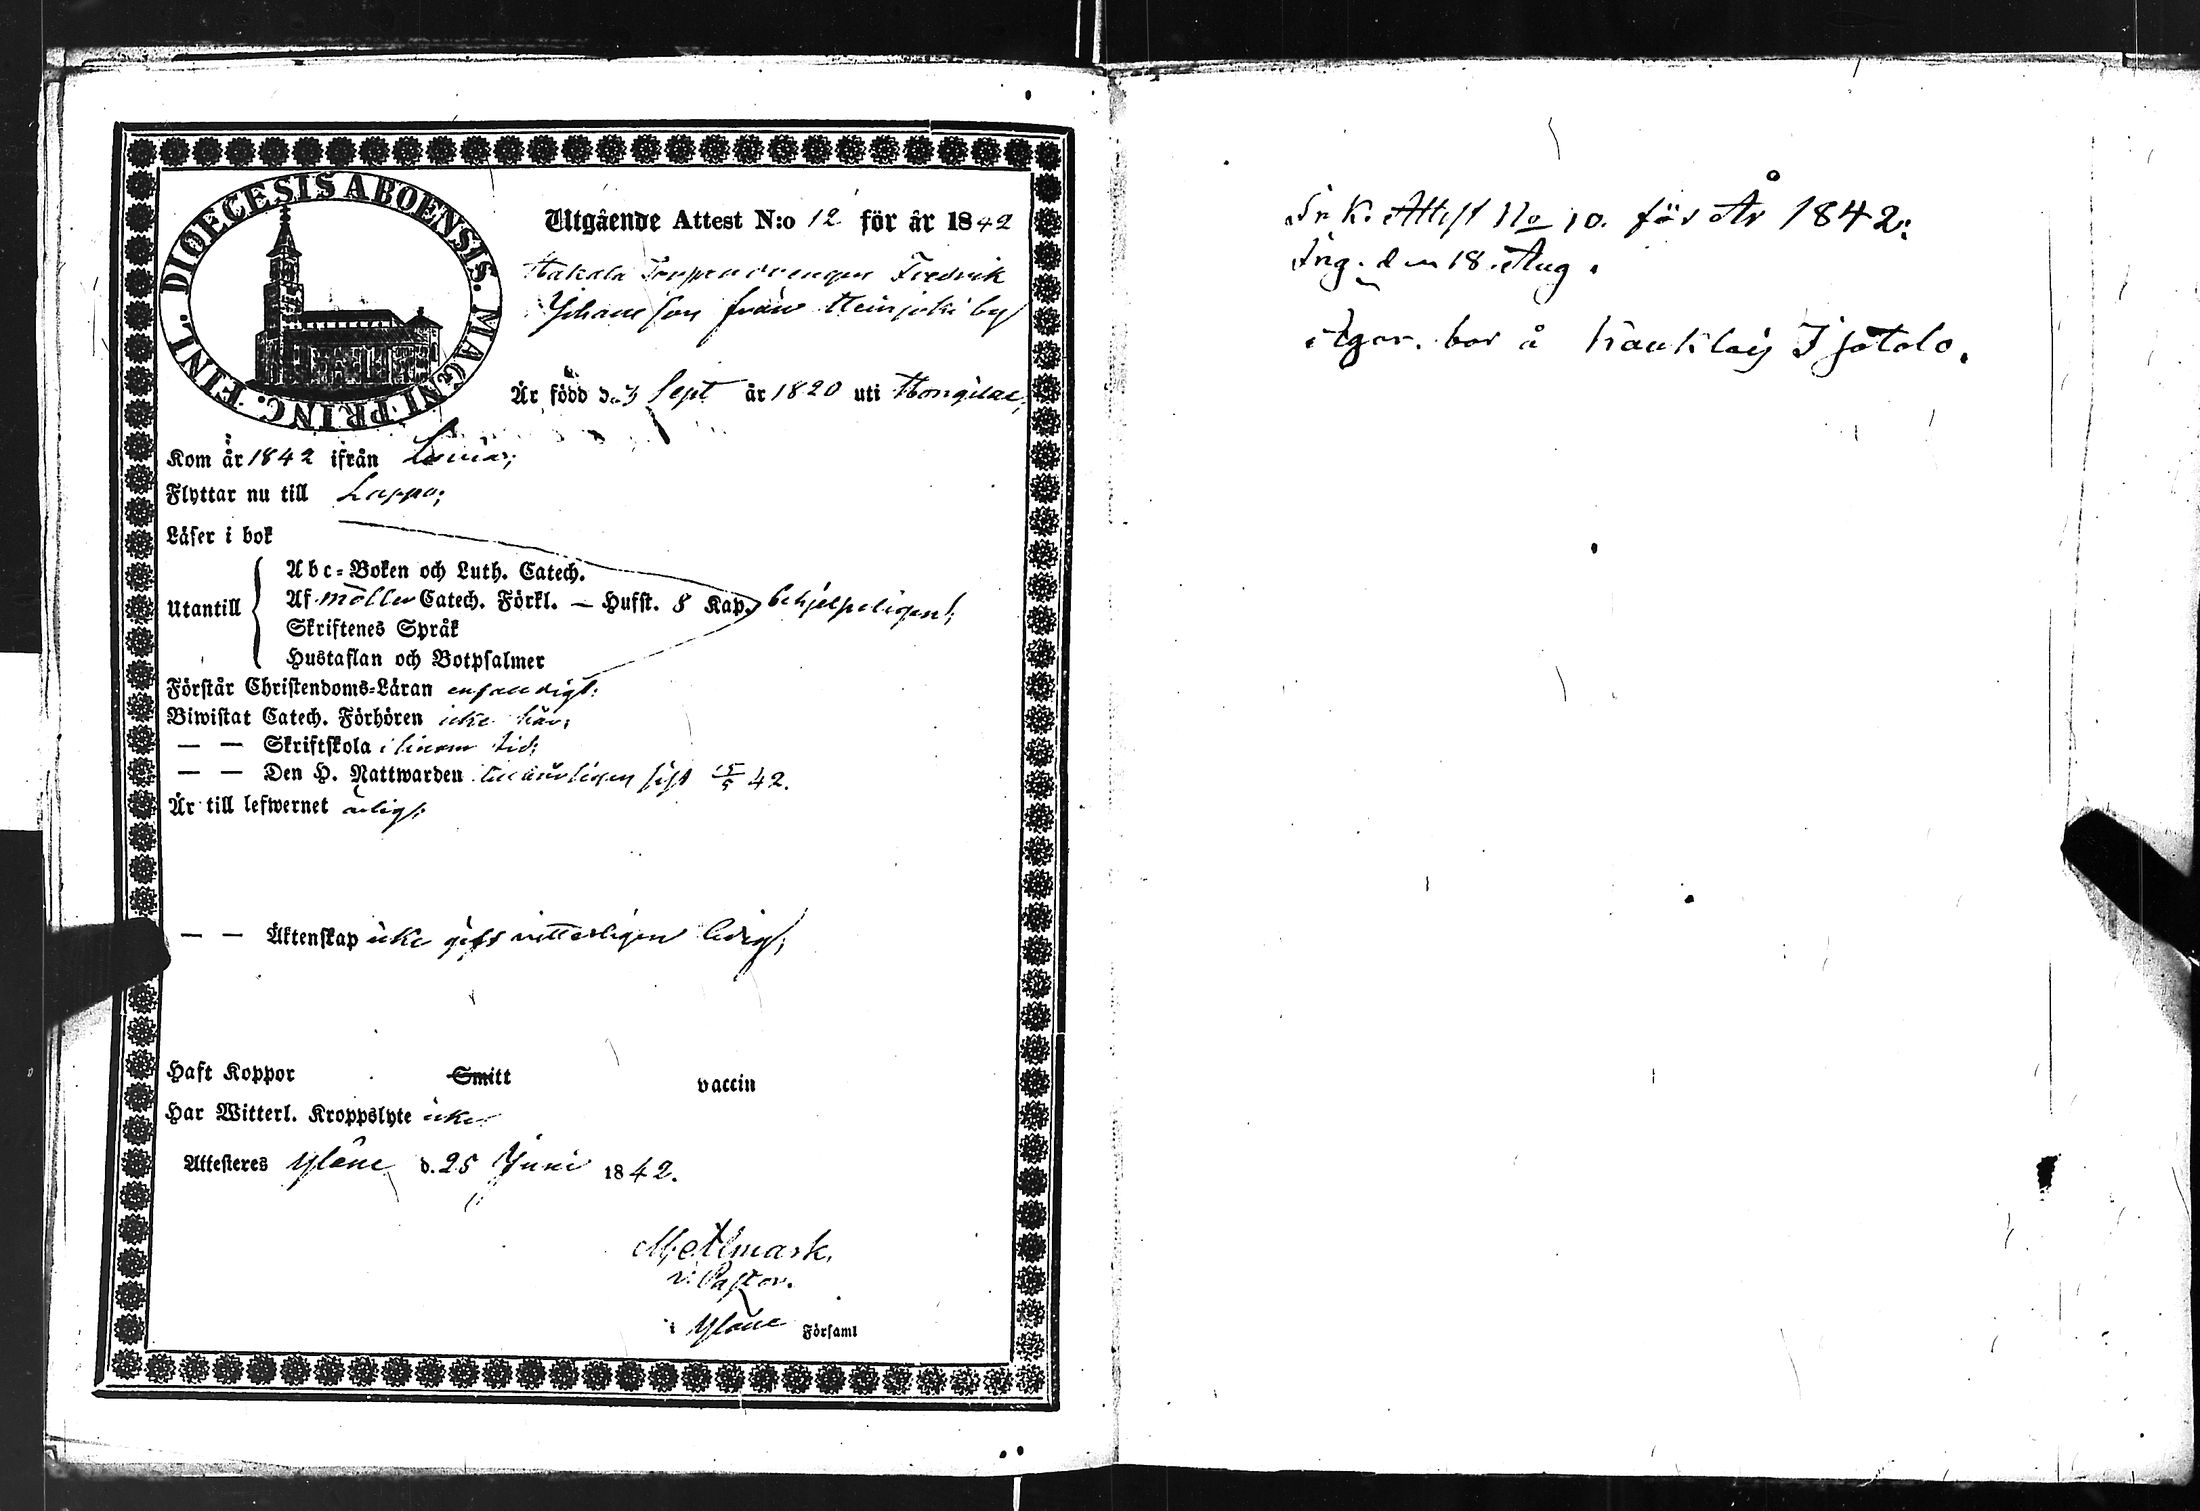 DIOECESIS ABOENSIS. MAGNI PRINC. FINL.
Utgående Attest N:o 12 för år 1842
Hakala Torpare drengen Fredrik
Johansson från Heinjoki by
Är född d. 3 Sept år 1820 uti Hongilax;
Kom år 1842 ifrån
Flyttar nu till Lappo;
Läser i bok
Utantill
Abc-Boken och Luth. Catech.
Af möller Catech. Förkl. — Husst. 8 Kap. behjelpeligent;
Skriftenes Språk
Hustaflan och Botpsalmer
Förstår Christendoms-Läran enfaldigt:
Biwistat Catech. Förhören icke här;
— — Skriftskola i sinom tid;
— — Den H. Nattwarden sist 42.
Är till lefwernet ärligt:
— — Äktenskap icke gift witterligen ledig;
Haft Koppor Smitt vaccin
Har Witterl. Kroppslyte icke.
Attesteres Yläne d. 25 Juni 1842.
M. Ahlmark.
v. Pastor.
i Yläne Församl
Ink. Attest No 10. för År 1842:
Ing. den 18. Aug.
Ägar. bor å